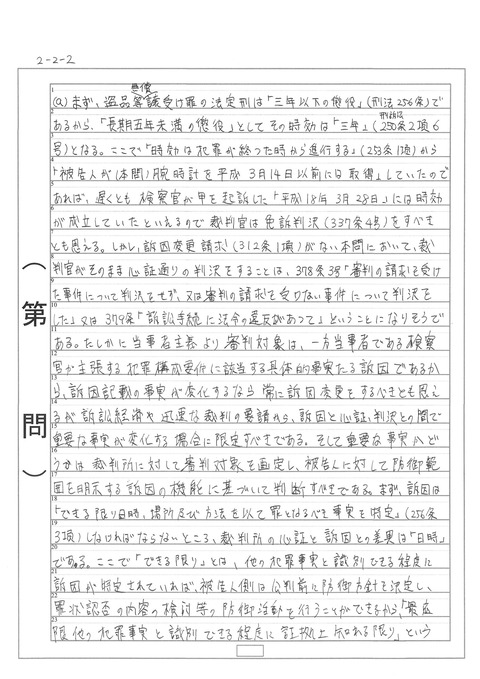 2-2-2
無償
1
(a)まず、盗品等譲受け罪の法定刑は「三年以下の懲役」(刑法256条)で
2
あるから、「長期五年未満の懲役」としてその時効は「三年」(250条2項6
刑訴法
3
号)となる。ここで「時効は犯罪が終った時から進行する」(253条1項)から
4
「被告人が(本問)腕時計を平成 3月14日以前には取得」していたので
5
あれば、遅くとも検察官が甲を起訴した「平成18年3月28日」には時効
6
が成立していたといえるので裁判官は免訴判決(337条4号)をすべき
7
とも思える。しかし、訴因変更請求(312条1項)がない本問において、裁
8
判官がそのまま心証通りの判決をすることは、378条3号「審判の請求を受け
9
た事件について判決をせず、又は審判の請求を受けない事件について判決を
10
した」又は379条「訴訟手続に法令の違反があつて」ということになりそうで
11
ある。たしかに当事者主義より審判対象は、一方当事者である検察
12
官が主張する犯罪構成要件に該当する具体的事実たる訴因であるか
13
ら、訴因記載の事実が変化するなら常に訴因変更をするべきとも思え
14
るが訴訟経済や迅速な裁判の要請から、訴因と心証、判決との間で
15
重要な事実が変化する場合に限定すべきである。そして重要な事実かど
16
うかは裁判所に対して審判対象を画定し、被告人に対して防御範
17
囲を明示する訴因の機能に基づいて判断すべきである。まず、訴因は
18
「できる限り日時、場所及び方法を以て罪となるべき事実を特定」(256条
19
3項)しなければならないところ、裁判所の心証と訴因との差異は「日時」
20
である。ここで「できる限り」とは、他の犯罪事実と識別できる程度に
21
訴因が特定されていれば、被告人側は公判前に防御方針を決定し、
22
罪状認否の内容の検討等の防御活動を行うことができるから、「最低
23
限他の犯罪事実と識別できる程度に証拠上知れる限り」という
(第 問)